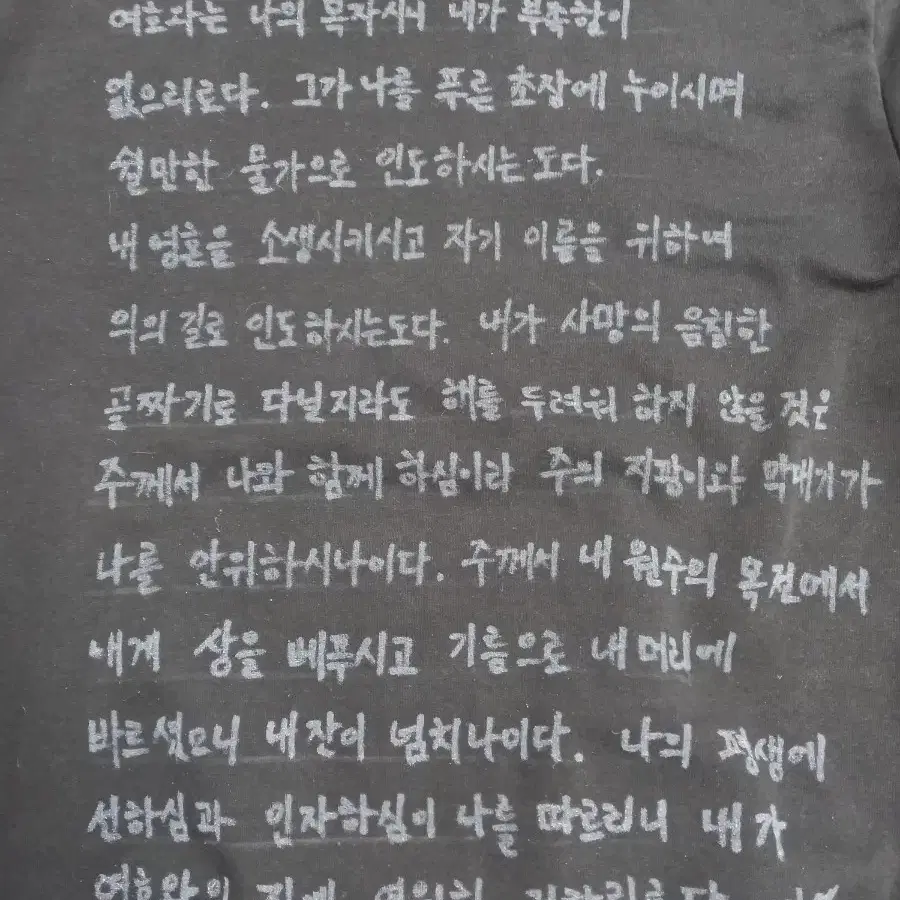 여호와는 나의 목자시니 내가 부족함이
없으리로다. 그가 나를 푸른 초장에 누이시며
쉴만한 물가으로 인도하시는도다.
내 영혼을 소생시키시고 자기 이름을 위하여
의의 길로 인도하시는도다. 내가 사망의 음침한
골짜기로 다닐지라도 해를 두려워 하지 않을 것은
주께서 나와 함께 하심이라 주의 지팡이와 막대기가
나를 안위하시나이다. 주께서 내 원수의 목전에서
내게 상을 베푸시고 기름으로 내 머리에
바르셨으니 내 잔이 넘치나이다. 나의 평생에
선하심과 인자하심이 나를 따르리니 내가
여호와의 집에 영원히 거하리로다